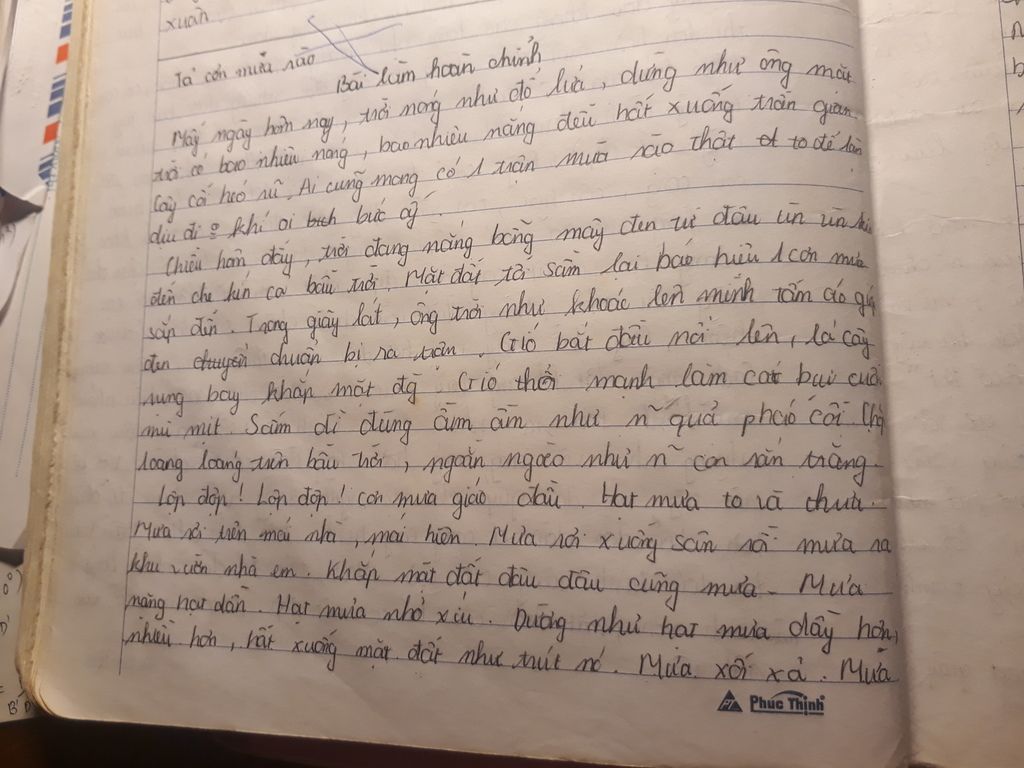 xuân.
Tả cơn mưa rào
Bài làm hoàn chỉnh
Mấy ngày hôm nay, trời nóng như đổ lửa, dường như ông mặt
trời có bao nhiêu nóng, bao nhiêu nắng đều hắt xuống trần gian
Cây cối héo rũ. Ai cũng mong có 1 trận mưa rào thật to để làm
dịu đi khí oi bức ấy.
Chiều hôm đấy, trời đang nắng bỗng mây đen từ đâu ùn ùn kéo
đến che kín cả bầu trời. Mặt đất tối sầm lại báo hiệu 1 cơn mưa
sắp đến. Trong giây lát, ông trời như khoác lên mình tấm áo giáp
đen chuẩn bị ra trận. Gió bắt đầu nổi lên, lá cây
rụng bay khắp mặt đg Gió thổi mạnh làm cát bụi cuốn
mù mịt. Sấm đì đùng ầm ầm như n~ quả pháo cối. Chớp
loang loáng trên bầu trời, ngoằn ngoèo như n~ con rắn trắng.
Lộp độp! Lộp độp! cơn mưa giáo đầu. Hạt mưa to và thưa.
Mưa rơi trên mái nhà, mái hiên. Mưa rơi xuống sân rồi mưa ra
khu vườn nhà em. Khắp mặt đất đâu đâu cũng mưa. Mưa
nặng hạt dần. Hạt mưa nhỏ xíu. Dường như hạt mưa dầy hơn,
nhiều hơn, hắt xuống mặt đất như trút nó. Mưa xối xả. Mưa
Phúc Thịnh